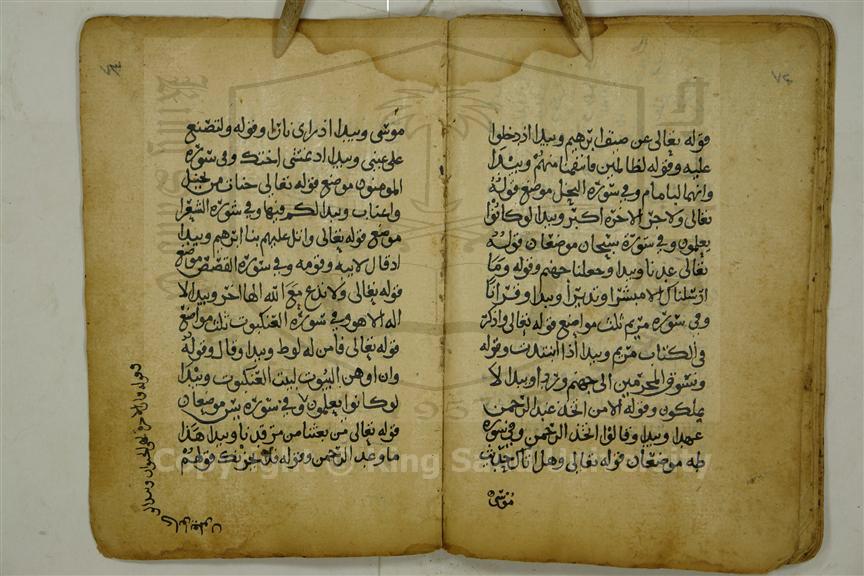 ٧٤
قوله تعالى عن ضيف ابرهيم ويبدا اذ دخلوا
عليه وقوله لظالمين فانتقمنا منهم ويبدا
وانهما لبامام وفي سورة النحل موضع قوله
تعالى ولاجر الاخره اكبر ويبدا لو كانوا
يعلمون وفي سورة سبحان موضعان قوله
تعالى عدنا ويبدا وجعلنا جهنم وقوله وما
ارسلناك الا مبشرا ونذيرا ويبدا وقرانا
وفي سورة مريم ثلث مواضع قوله تعالى واذكر
في الكتاب مريم ويبدا اذا انتبذت وقوله
ونسوق المجرمين الى جهنم وردا ويبدا لا
يملكون وقوله الا من اتخذ عند الرحمن
عهدا ويبدا وقالوا اتخذ الرحمن وفي سورة
طه موضعان قوله تعالى وهل اتاك حديث
موسى
موسى ويبدا اذ راى نارا وقوله ولتصنع
على عيني ويبدا اذ تمشي اختك وفي سورة
المومنون موضع قوله تعالى جنات من نخيل
واعناب ويبدا لكم فيها وفي سورة الشعرا
موضع قوله تعالى واتل عليهم نبا ابرهيم ويبدا
اذ قال لابيه وقومه وفي سورة القصص موضع
قوله تعالى ولا تدع مع الله الها اخر ويبدا لا
اله الا هو وفي سورة العنكبوت ثلث مواضع
قوله تعالى فامن له لوط ويبدا وقال وقوله
وان اوهن البيوت لبيت العنكبوت ويبدا
لو كانوا يعلمون وفي سورة يس موضعان
قوله تعالى من بعثنا من مرقدنا ويبدا هذا
ما وعد الرحمن وقوله فلا يحزنك قولهم
وقوله وان الدار الاخرة لهي الحيوان ويبدا لو
كانوا يعلمون
Copyright © King Saud University